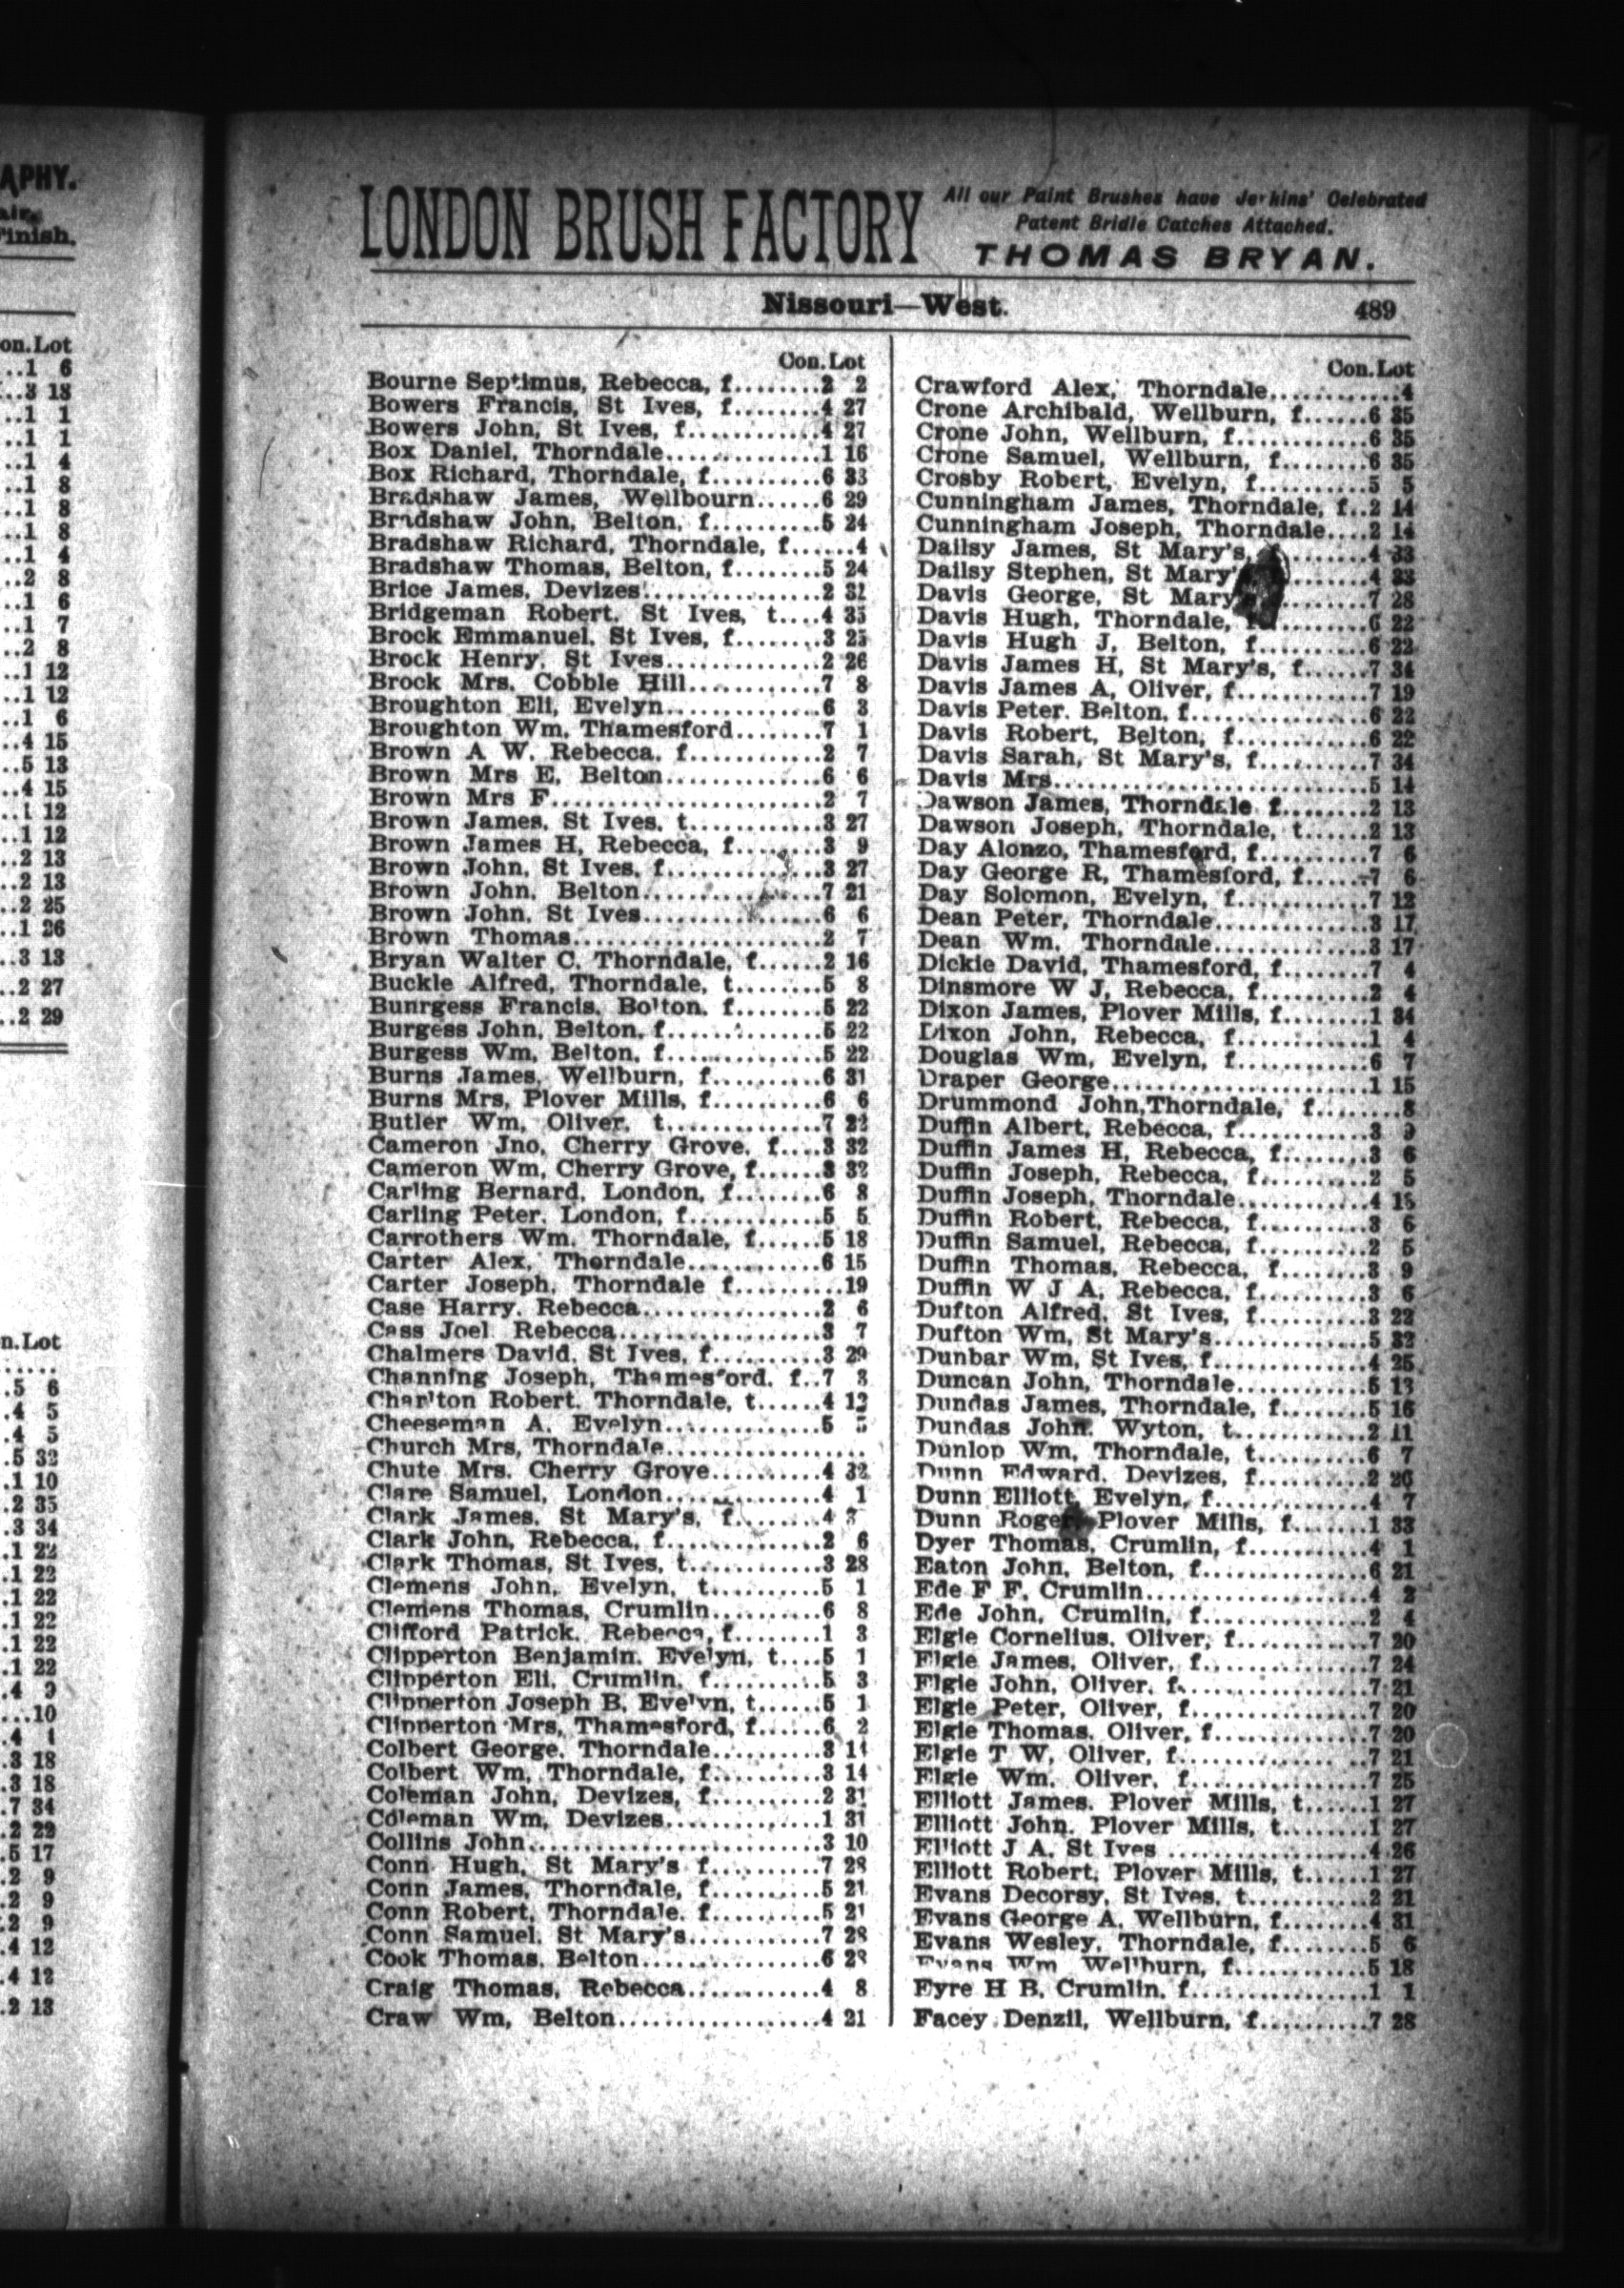 APHY.
air.
Finish.
on.Lot
..1 6
...3 13
..1 1
..1 1
..1 4
..1 8
..1 8
..1 8
..1 4
..2 8
..1 6
..1 7
..2 8
..1 12
..1 12
..1 6
..4 15
..5 13
..4 15
..1 12
..1 12
..2 13
..2 13
..2 25
..1 26
..3 13
..2 27
..2 29
n.Lot
....
.5 6
.4 5
.4 5
.5 32
.1 10
.2 35
.3 34
.1 22
.1 22
.1 22
.1 22
.1 22
.1 22
.4 9
...10
.4 1
.3 18
.3 18
.7 34
.2 22
.5 17
.2 9
.2 9
.2 9
.4 12
.4 12
.2 13
LONDON BRUSH FACTORY
All our Paint Brushes have Jenkins' Celebrated
Patent Bridle Catches Attached.
THOMAS BRYAN.
Nissouri—West. 489
Con.Lot
Bourne Septimus, Rebecca, f........2 2
Bowers Francis, St Ives, f........4 27
Bowers John, St Ives, f...........4 27
Box Daniel, Thorndale.............1 16
Box Richard, Thorndale, f.........6 33
Bradshaw James, Wellbourn......6 29
Bradshaw John, Belton, f.........5 24
Bradshaw Richard, Thorndale, f......4
Bradshaw Thomas, Belton, f........5 24
Brice James, Devizes..............2 32
Bridgeman Robert. St Ives, t....4 35
Brock Emmanuel. St Ives, f.......3 25
Brock Henry. St Ives.............2 26
Brock Mrs. Cobble Hill............7 8
Broughton Eli, Evelyn.............6 3
Broughton Wm. Thamesford........7 1
Brown A W. Rebecca. f...........2 7
Brown Mrs E. Belton..............6 6
Brown Mrs F......................2 7
Brown James. St Ives. t...........3 27
Brown James H, Rebecca, f.......3 9
Brown John, St Ives. f............3 27
Brown John. Belton...............7 21
Brown John. St Ives..............6 6
Brown Thomas....................2 7
Bryan Walter C. Thorndale, f......2 16
Buckle Alfred, Thorndale, t.......5 8
Bunrgess Francis. Bolton. f.......5 22
Burgess John. Belton. f............5 22
Burgess Wm, Belton. f............5 22
Burns James, Wellburn, f.........6 31
Burns Mrs, Plover Mills, f.........6 6
Butler Wm, Oliver. t.............7 22
Cameron Jno, Cherry Grove. f....3 32
Cameron Wm, Cherry Grove, f......3 32
Carling Bernard, London, f.......6 8
Carling Peter. London, f...........5 5
Carrothers Wm. Thorndale, f......5 18
Carter Alex, Thorndale............6 15
Carter Joseph, Thorndale f.........19
Case Harry. Rebecca...............2 6
Cass Joel Rebecca.................3 7
Chalmers David, St Ives, f.........3 29
Channing Joseph, Thamesford. f..7 3
Charlton Robert. Thorndale, t......4 12
Cheeseman A. Evelyn..............5 5
Church Mrs, Thorndale..................
Chute Mrs. Cherry Grove.........4 32
Clare Samuel, London.............4 1
Clark James. St Mary's, f........4
Clark John, Rebecca, f............2 6
Clark Thomas, St Ives, t..........3 28
Clemens John, Evelyn, t.........5 1
Clemens Thomas, Crumlin.........6 8
Clifford Patrick. Rebecca, f........1 3
Clipperton Benjamin. Evelyn, t....5 1
Clipperton Eli. Crumlin. f.........5 3
Clipperton Joseph B. Evelyn, t.....5 1
Clipperton Mrs, Thamesford, f......6 2
Colbert George. Thorndale.........3 14
Colbert Wm, Thorndale, f.........3 14
Coleman John, Devizes, f.........2 31
Coleman Wm, Devizes.............1 31
Collins John......................3 10
Conn Hugh, St Mary's f..........7 28
Conn James, Thorndale, f.........5 21
Conn Robert, Thorndale. f.........5 21
Conn Samuel. St Mary's...........7 28
Cook Thomas. Belton..............6 28
Craig Thomas, Rebecca...........4 8
Craw Wm, Belton.................4 21
Con.Lot
Crawford Alex, Thorndale............4
Crone Archibald, Wellburn, f......6 35
Crone John, Wellburn, f...........6 35
Crone Samuel, Wellburn, f........6 35
Crosby Robert, Evelyn, f..........5 5
Cunningham James, Thorndale, f..2 14
Cunningham Joseph, Thorndale....2 14
Dailsy James, St Mary's, f........4 33
Dailsy Stephen, St Mary's........4 33
Davis George, St Mary's.........7 28
Davis Hugh, Thorndale, f.........6 22
Davis Hugh J, Belton, f..........6 22
Davis James H, St Mary's, f......7 34
Davis James A, Oliver, f...........7 19
Davis Peter. Belton. f..............6 22
Davis Robert, Belton, f............6 22
Davis Sarah, St Mary's, f.........7 34
Davis Mrs........................5 14
Dawson James, Thorndale f.......2 13
Dawson Joseph, Thorndale, t......2 13
Day Alonzo, Thamesford, f.........7 6
Day George R, Thamesford, f......7 6
Day Solomon, Evelyn, f...........7 12
Dean Peter, Thorndale............3 17
Dean Wm, Thorndale.............3 17
Dickie David, Thamesford, f........7 4
Dinsmore W J, Rebecca, f.........2 4
Dixon James, Plover Mills, f........1 34
Dixon John, Rebecca, f...........1 4
Douglas Wm, Evelyn, f...........6 7
Draper George.....................1 15
Drummond John,Thorndale, f........8
Duffin Albert, Rebecca, f..........3 9
Duffin James H, Rebecca, f........3 6
Duffin Joseph, Rebecca, f.........2 5
Duffin Joseph, Thorndale..........4 18
Duffin Robert, Rebecca, f.........3 6
Duffin Samuel, Rebecca, f.........2 5
Duffin Thomas, Rebecca, f........3 9
Duffin W J A, Rebecca, f.........3 6
Dufton Alfred, St Ives, f..........3 22
Dufton Wm, St Mary's.............5 32
Dunbar Wm, St Ives, f............4 25
Duncan John, Thorndale...........5 13
Dundas James, Thorndale, f.......5 16
Dundas John. Wyton, t...........2 11
Dunlop Wm, Thorndale, t.........6 7
Dunn Edward. Devizes, f.........2 26
Dunn Elliott, Evelyn, f............4 7
Dunn Roger, Plover Mills, f.......1 33
Dyer Thomas, Crumlin, f..........4 1
Eaton John, Belton, f.............6 21
Ede F F, Crumlin.................4 2
Ede John, Crumlin, f..............2 4
Elgie Cornelius. Oliver, f..........7 20
Elgie James, Oliver, f.............7 24
Elgie John, Oliver. f...............7 21
Elgie Peter, Oliver, f..............7 20
Elgie Thomas. Oliver, f............7 20
Elgie T W, Oliver. f...............7 21
Elgie Wm. Oliver. f...............7 25
Elliott James. Plover Mills, t......1 27
Elliott John. Plover Mills, t.......1 27
Elliott J A. St Ives ...............4 26
Elliott Robert, Plover Mills, t......1 27
Evans Decorsy, St Ives. t..........2 21
Evans George A. Wellburn, f.......4 31
Evans Wesley, Thorndale, f........5 6
Evans Wm Wellburn, f............5 18
Eyre H B, Crumlin. f...............1 1
Facey Denzil, Wellburn, f..........7 28